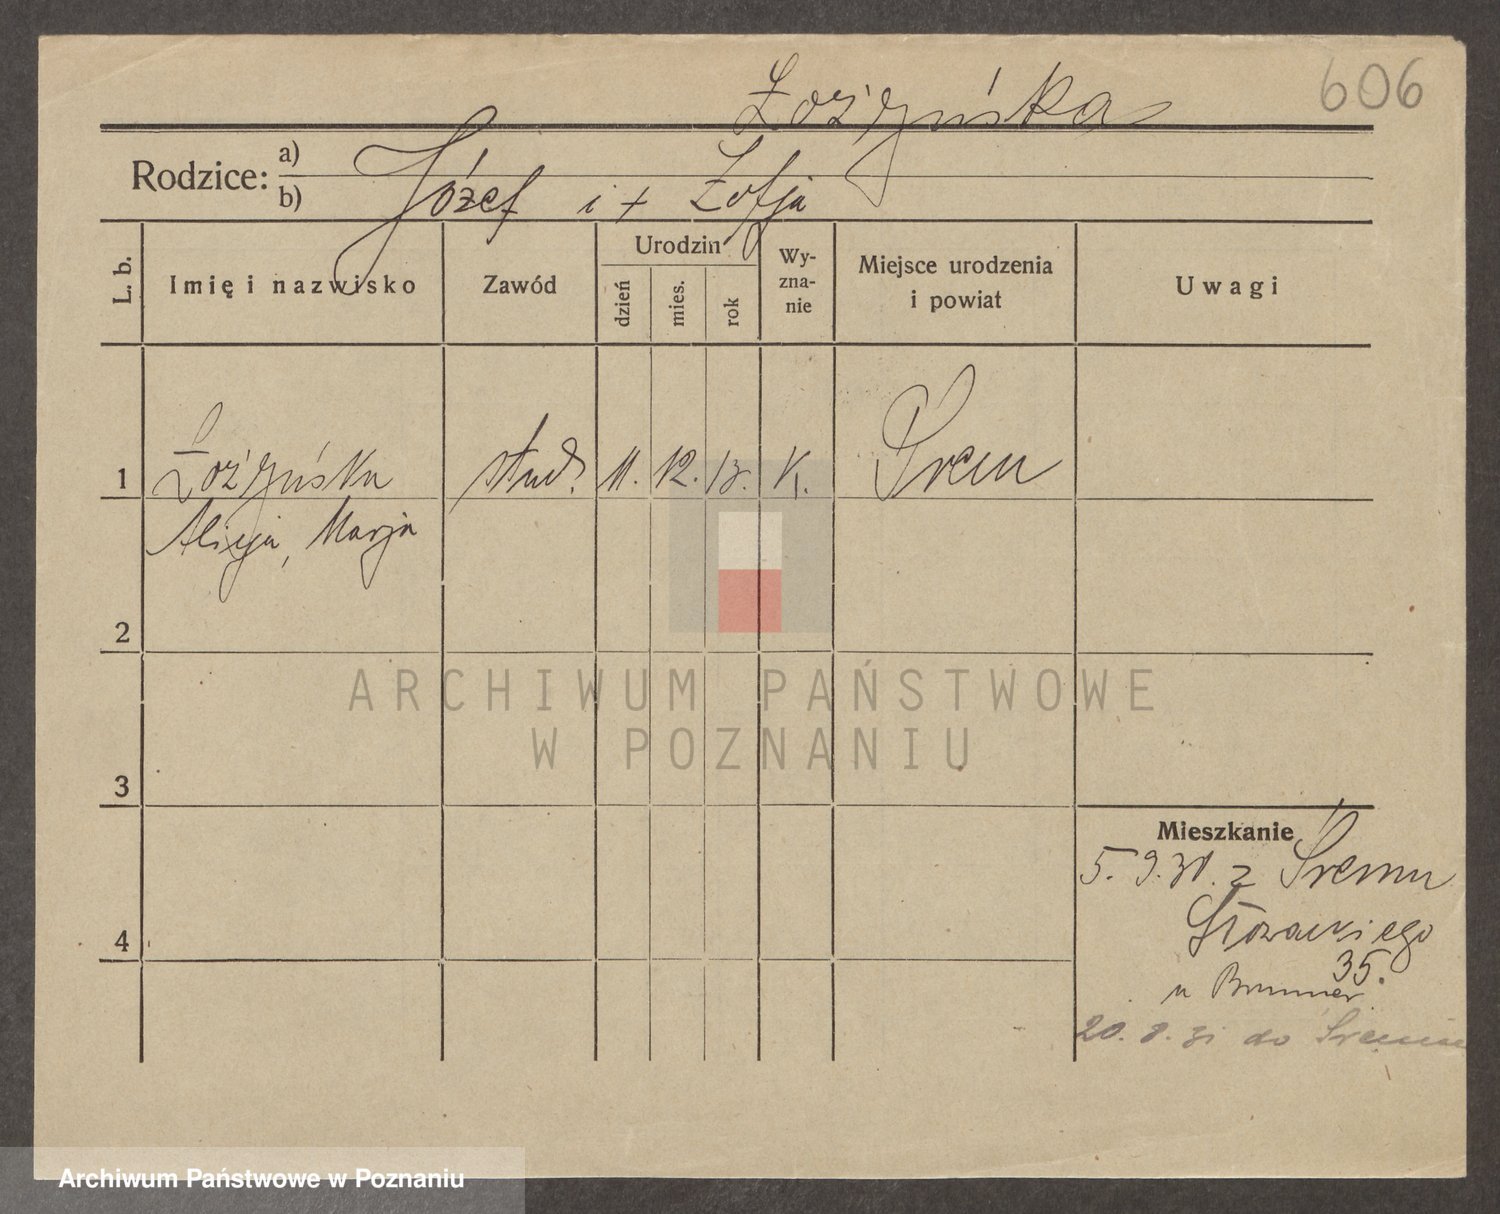 606
Łożyńska
Rodzice: a)
b) Józef i + Zofja
L. b.
Imię i nazwisko
Zawód
Urodzin
dzień
mies.
rok
Wy-
zna-
nie
Miejsce urodzenia
i powiat
Uwagi
1 Łożyńska stud. 11. 12. 13. K. Śrem
Alicja, Marja
2
3
4
Mieszkanie
5. 9. 30. z Śremu
Słowackiego
35.
u Brunner
20. 8. 31 do Śremu
ARCHIWUM PAŃSTWOWE
W POZNANIU
Archiwum Państwowe w Poznaniu